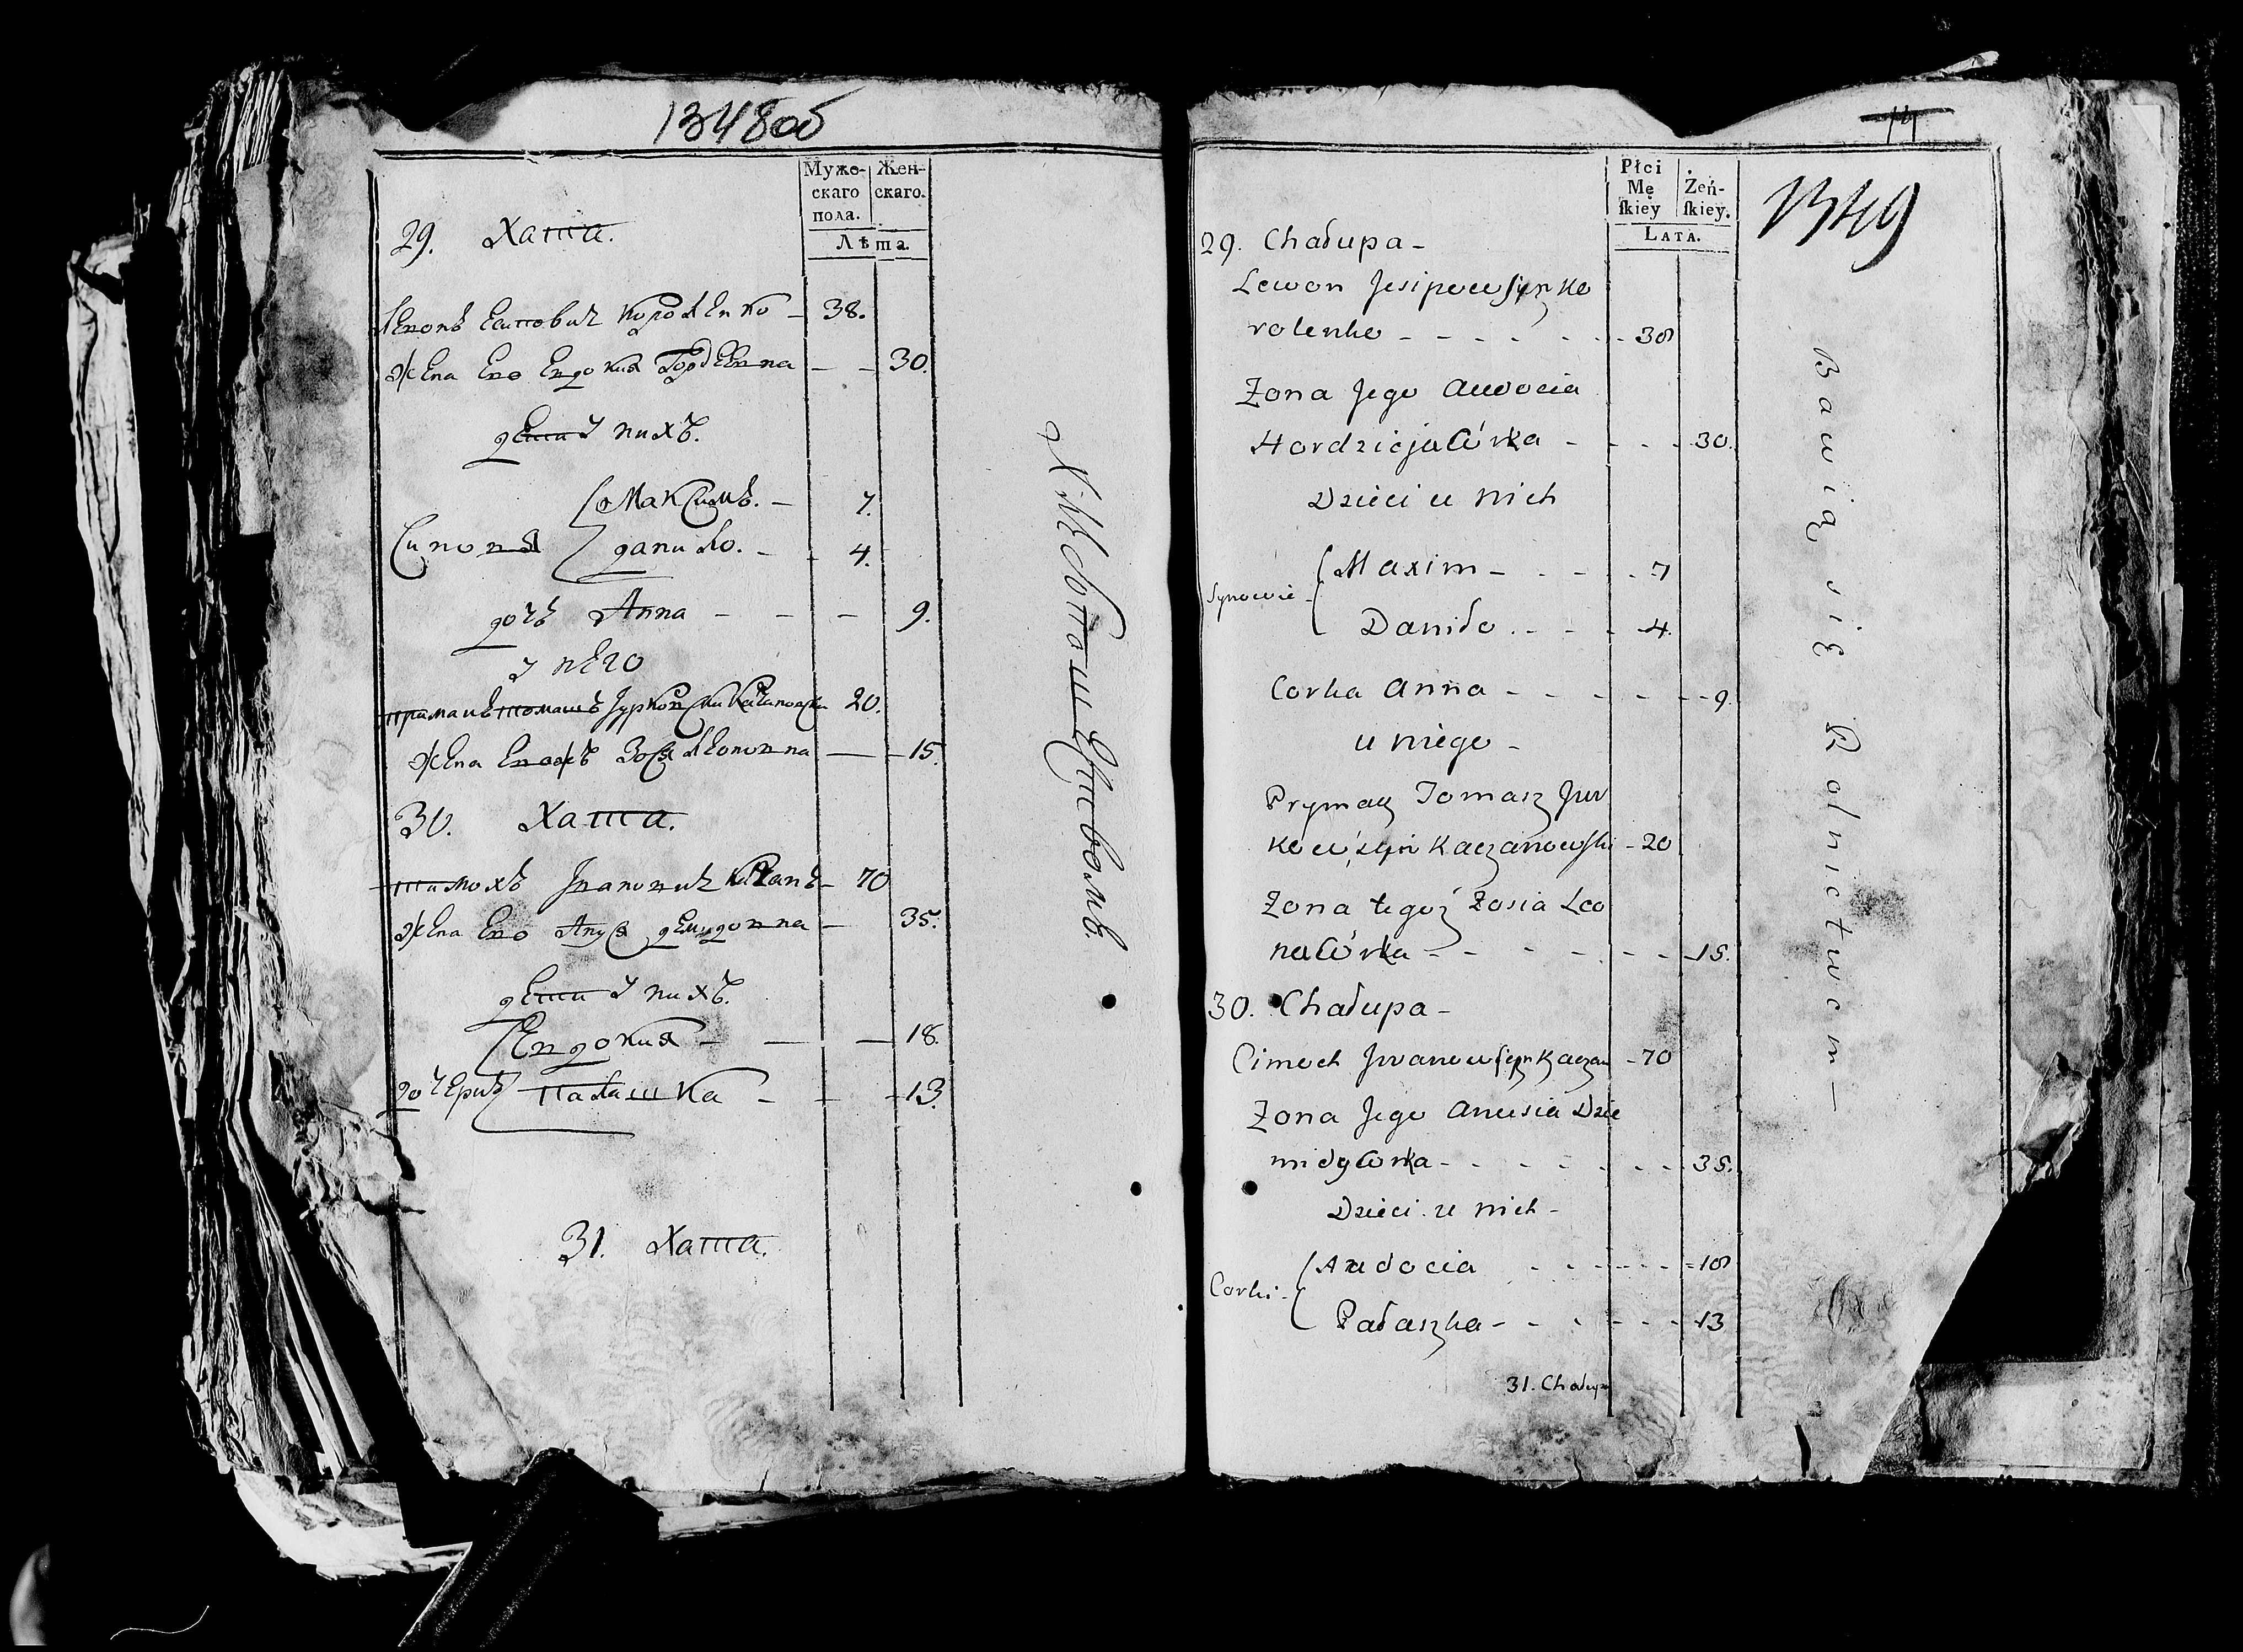 1348об
Муже-
скаго
пола.
Жен-
скаго.
Лѣта.
29. Хата.
Левонъ Есипович Короленко - 38.
жена Ево Евдокия Гордѣевна - - 30.
дети У нихъ.
Максимъ. - 7.
Синовя
данило. - 4.
дочь Анна - - - 9.
У него
примакъ томашъ Юрковски Качановски 20.
жена Евожъ Зося Левоновна - - 15.
30. Хата.
тимохъ Ивановичъ Качанъ - 70
жена ЕвоАнуся демидовна - 35.
дети У нихъ.
Евдокия - - - 18.
дочери
Палашка - - - 13.
31. Хата.
Хлебопашеством.
14
1349
Płci
Mę
ſkiey
Żeń-
ſkiey.
LATA.
29. Chałupa -
Lewon Jesipow syn Ko
rolenko - - - - - - 38
Żona Jego Awdocia
Hordzieja Córka - - - - 30.
Dzieci u nich
Maxim - - - - 7
Synowie -
Daniło . - - - 4.
Corka Anna - - - - - - 9.
u niego -
Prymak Tomasz Jur
kow syn Kaczanowski - 20
Żona tegoż Zosia Leo
na Córka - - - - - - - 15.
30. Chałupa -
Cimoch Iwanow syn Kaczan - 70
Żona Jego Anusia Dzie
midy Corka - - - - - - - 35.
Dzieci u nich -
Audocia - - - - - - 18
Corki -
Pałaszka - - - - - - - 13
31. Chałupa
Bawią się Rolnictwem -